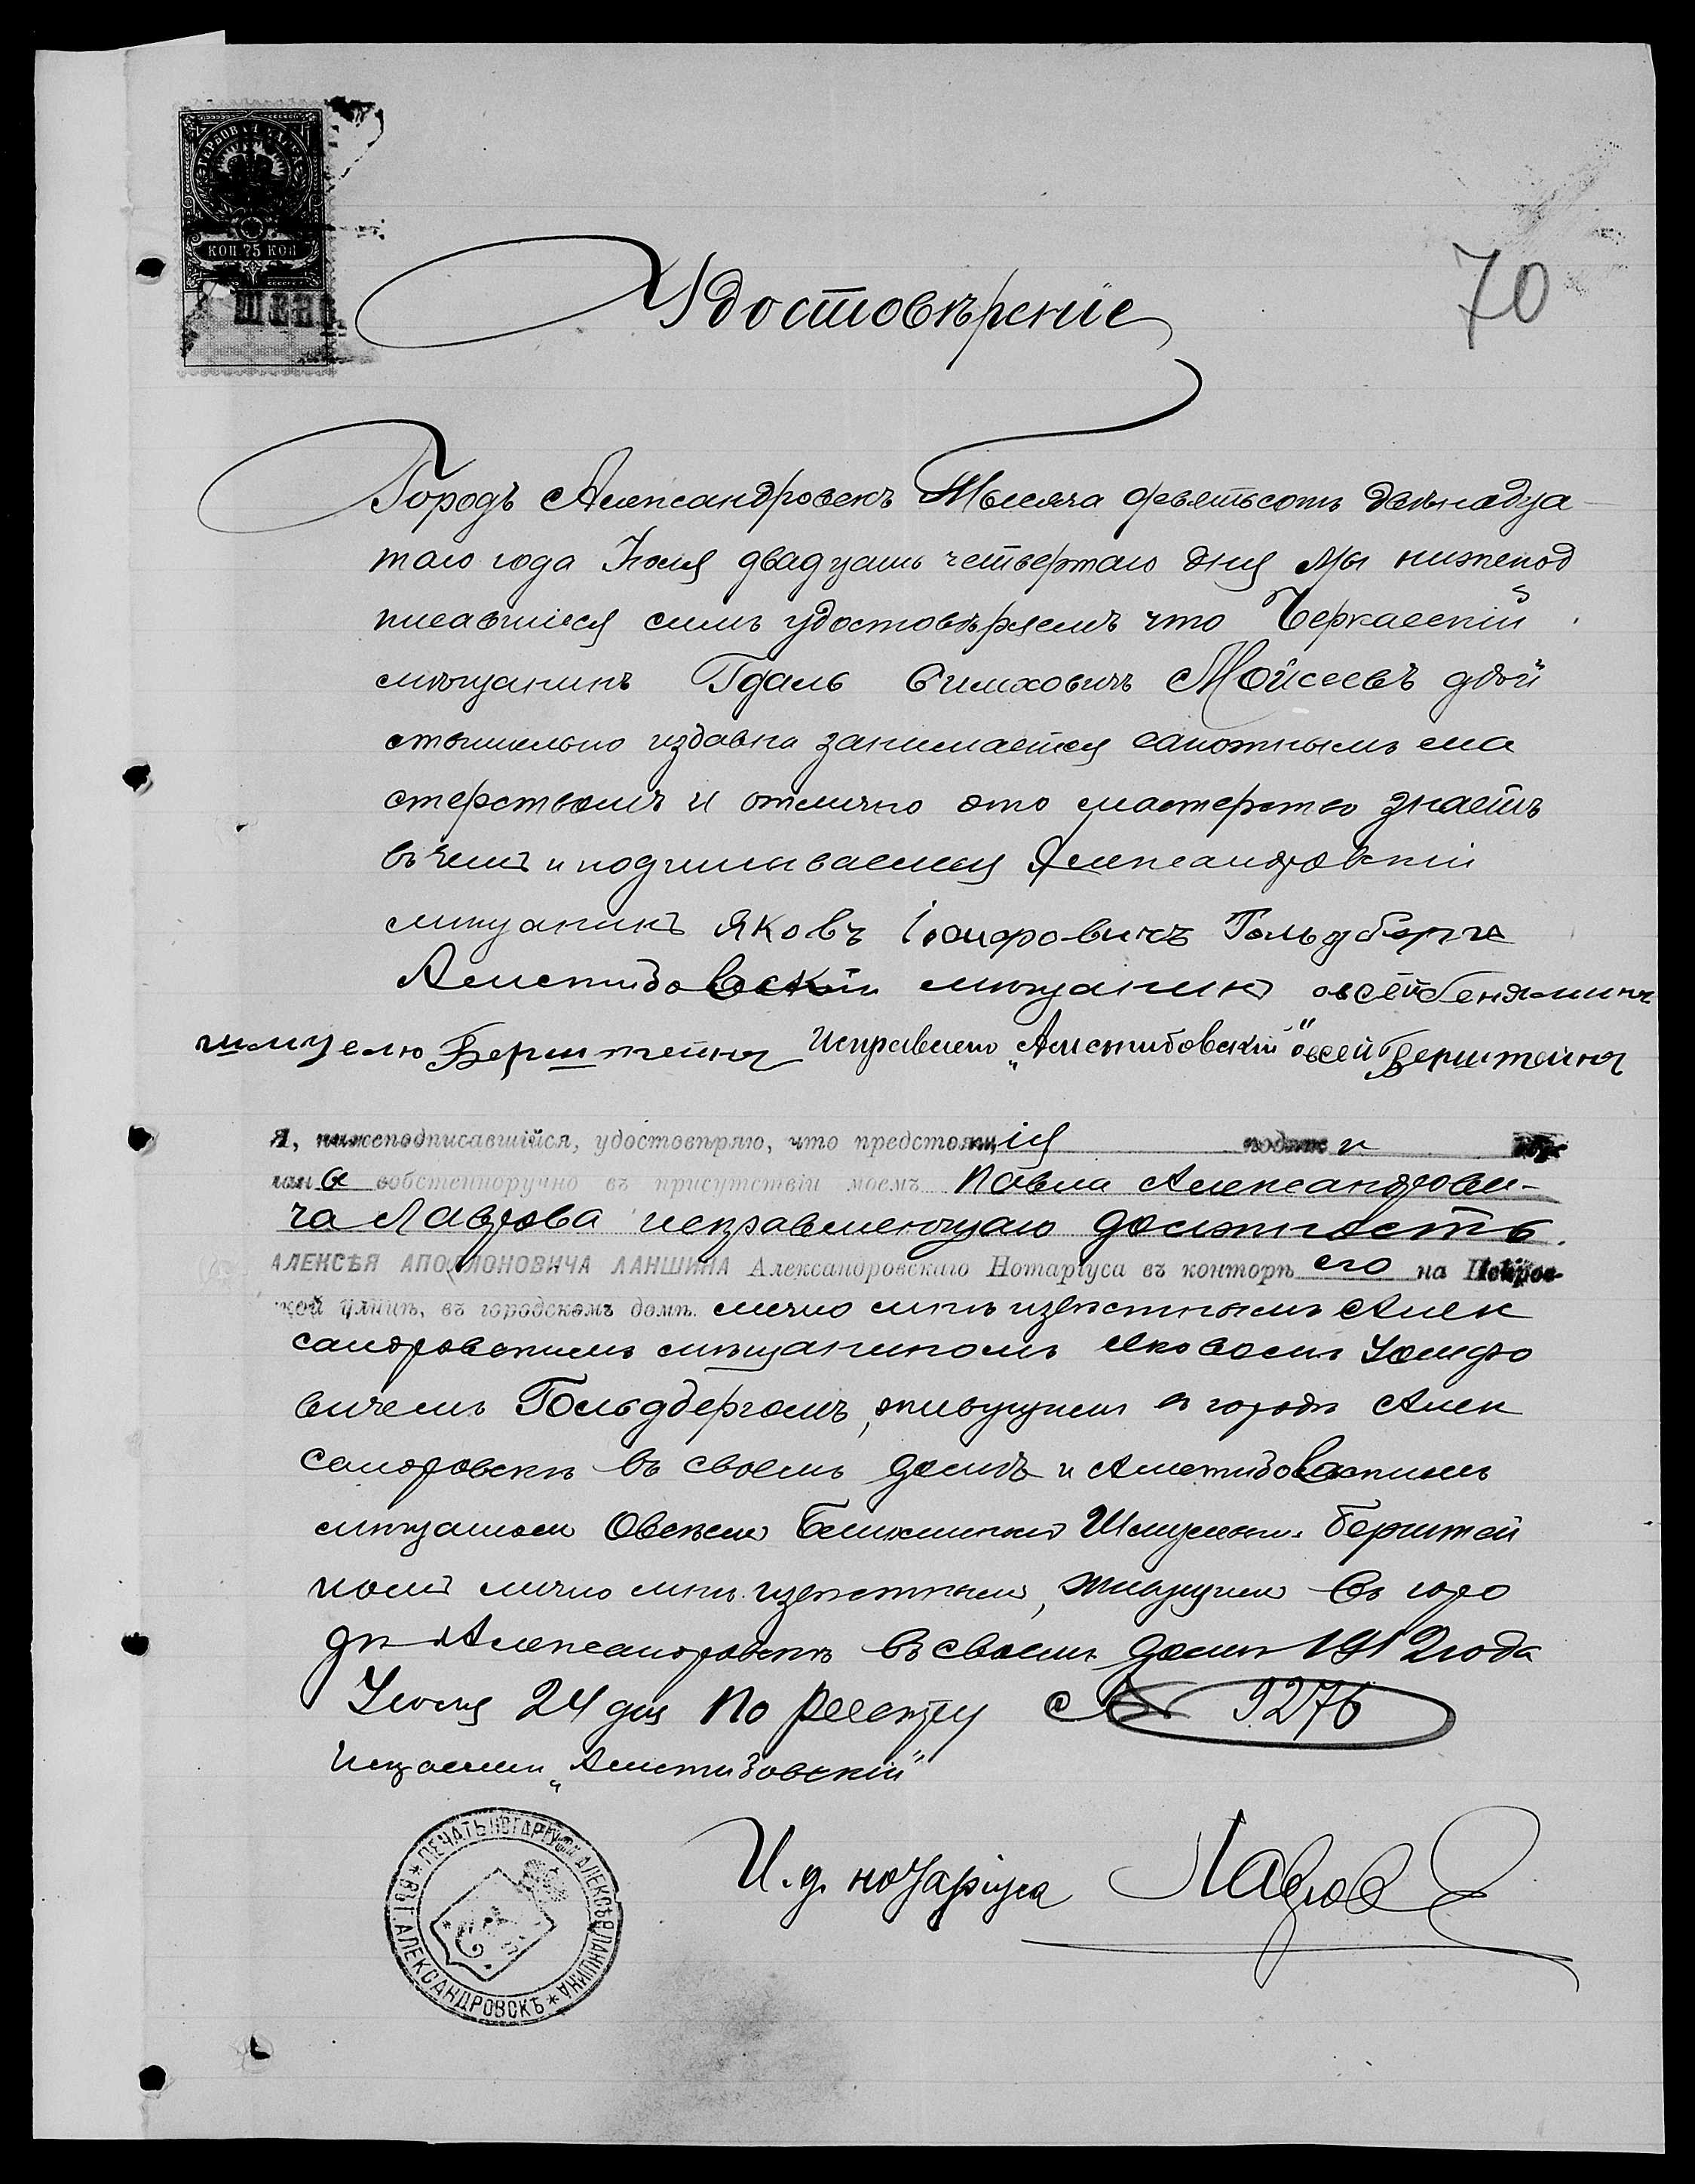 ГЕРБОВАЯ МАРКА
КОП. 75 КОП
70
Удостовѣреніе
Городъ Александровскъ Тысяча девятьсотъ двѣнадца-
таго года Іюля двадцать четвертаго дня Мы нижепод
писавшіеся симъ удостовѣряемъ что Черкасскій
мѣщанинъ Гдаль Симховичъ Мойсеевъ дѣй
ствительно издавна занимается сапожнымъ ма
стерствомъ и отлично это мастерство знаетъ
въ чемъ и подписываемся Александровскій
мѣщанинъ Яковъ Гольдбергъ
Амстибовскій мѣщанинъ овсей Бенямин
шмуелю Берштейнъ Исправлено „Амстибовскій" овсей Берштейнъ
Я, нижеподписавшійся, удостовѣряю, что предстоящія подписи
ланы собственноручно въ присутствіи моемъ Павла Александрови-
ча Лаврова исправляющаго должность
АЛЕКСѢЯ АПОЛЛОНОВИЧА ЛАНШИНА Александровскаго Нотаріуса въ конторѣ его на Покров-
кой улицѣ, въ городскомъ домѣ. лично мнѣ извѣстнымъ Алек
сандровскимъ мѣщаниномъ Яковомъ
вичемъ Гольдбергомъ, живущимъ въ городѣ Алек
сандровскѣ въ своемъ домѣ и Амстибовскимъ
мѣщаниномъ Овсеемъ Беньяминомъ Берштей
номъ лично мнѣ извѣстнымъ, живущимъ въ горо
дѣ Александровскѣ въ своемъ домѣ 1912 года
Іюля 24 дня По реестру № 9276
Исправлено „Амстибовскій"
И. д. нотаріуса Лавров
* ПЕЧАТЬ НОТАРІУСА АЛЕКСѢЯ ЛАНШИНА * ВЪ Г. АЛЕКСАНДРОВСКѢ